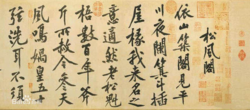 松風閣
依山築閣見平
川夜闌箕斗插
屋椽我來名之
意適然老松魁
梧數百年斧
斤所赦今參天
風鳴媧皇五十
弦洗耳不須